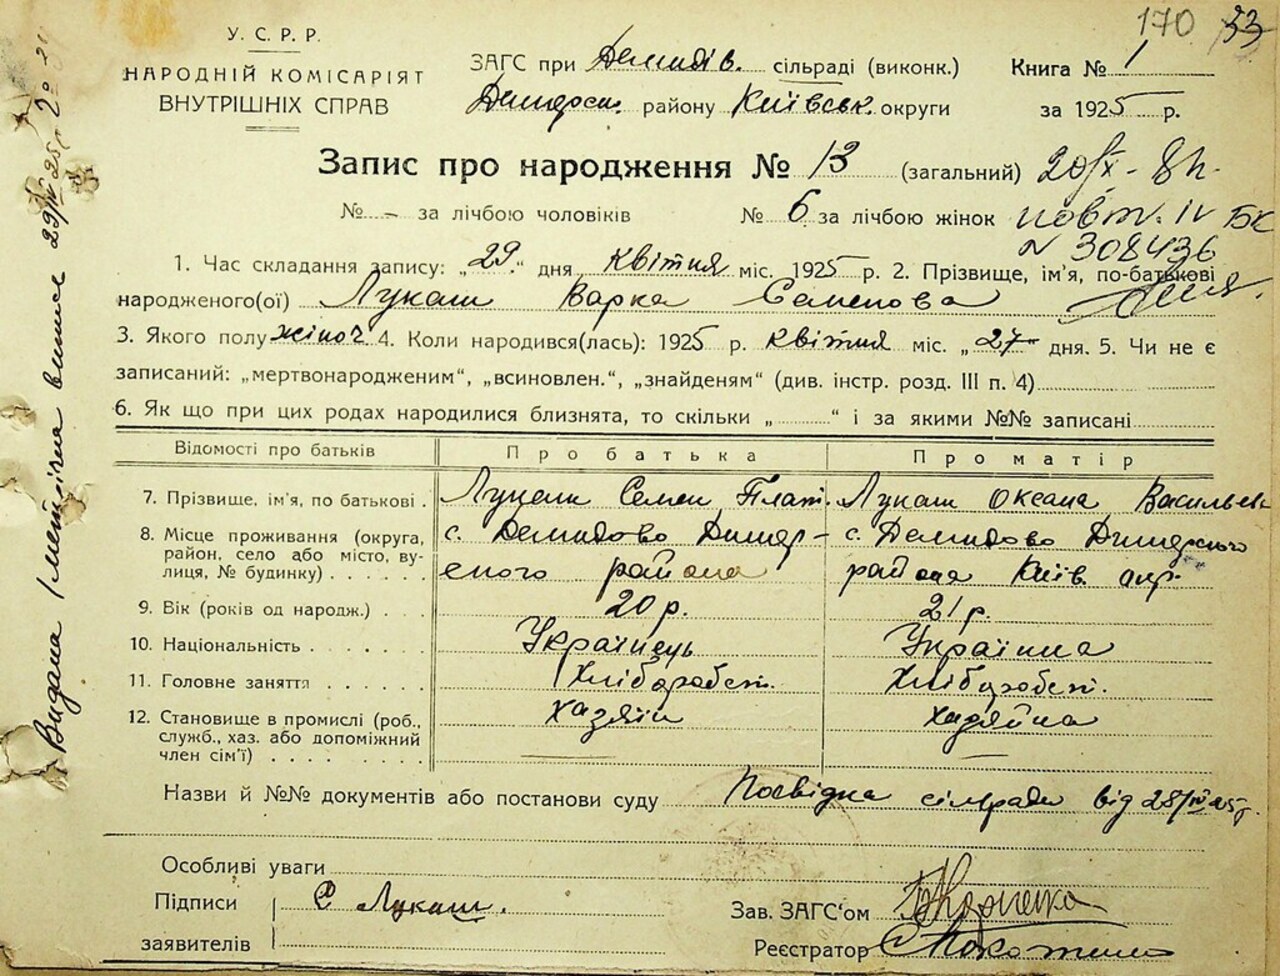 170 33
У. С. Р. Р.
НАРОДНІЙ КОМІСАРІЯТ
ВНУТРІШНІХ СПРАВ
ЗАГС при Демидів. сільраді (виконк.)
Димерськ. району Київськ. округи
Книга № 1
за 1925 р.
Запис про народження № 13 (загальний) 20/ІХ - 8 н.
№ - за лічбою чоловіків № 6 за лічбою жінок повт. IV БК
N 308436
1. Час складання запису: „29“ дня квітня міс. 1925 р. 2. Прізвище, ім'я, по-батькові
народженого(ої) Лукаш Варка Семенова
3. Якого полу жіноч. 4. Коли народився(лась): 1925 р. квітня міс. „27“ дня. 5. Чи не є
записаний: „мертвонародженим“, „всиновлен.“, „знайденям“ (див. інстр. розд. III п. 4)
6. Як що при цих родах народилися близнята, то скільки „ “ і за якими №№ записані
Відомості про батьків Про батька Про матір
7. Прізвище, ім'я, по батькові . Лукаш Семен Плат. Лукаш Оксана Васильев
8. Місце проживання (округа, с. Демидово Димер- с. Демидово Димерского
район, село або місто, ву-
лиця, № будинку) . . . . . . ского района района Київ. окр.
9. Вік (років од народж.) . . 20 р. 21 р.
10. Національність . . . . . . Українець Українка
11. Головне заняття . . . . . Хлібороб­ст. Хлібороб­ст.
12. Становище в промислі (роб., хазяїн хазяйка
служб., хаз. або допоміжний
член сім'ї) . . . . . . .
Назви й №№ документів або постанови суду Посвідка сільради від 28/IV 25 р.
Особливі уваги
Підписи С Лукаш.
заявителів
Зав. ЗАГС'ом
Реєстратор
Видана метрична виписс 29/IV 25 р.